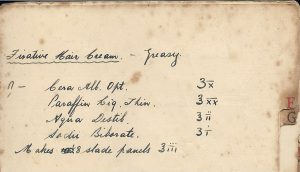 Fixative Hair Cream. - Greasy.
℞ - Cera Alb. Opt. ʒx
Paraffin Liq. Thin. ʒxx
Aqua Destil. ʒii
Sodii Biborate. ʒi
Makes 8 slade panels ʒiii
F
G